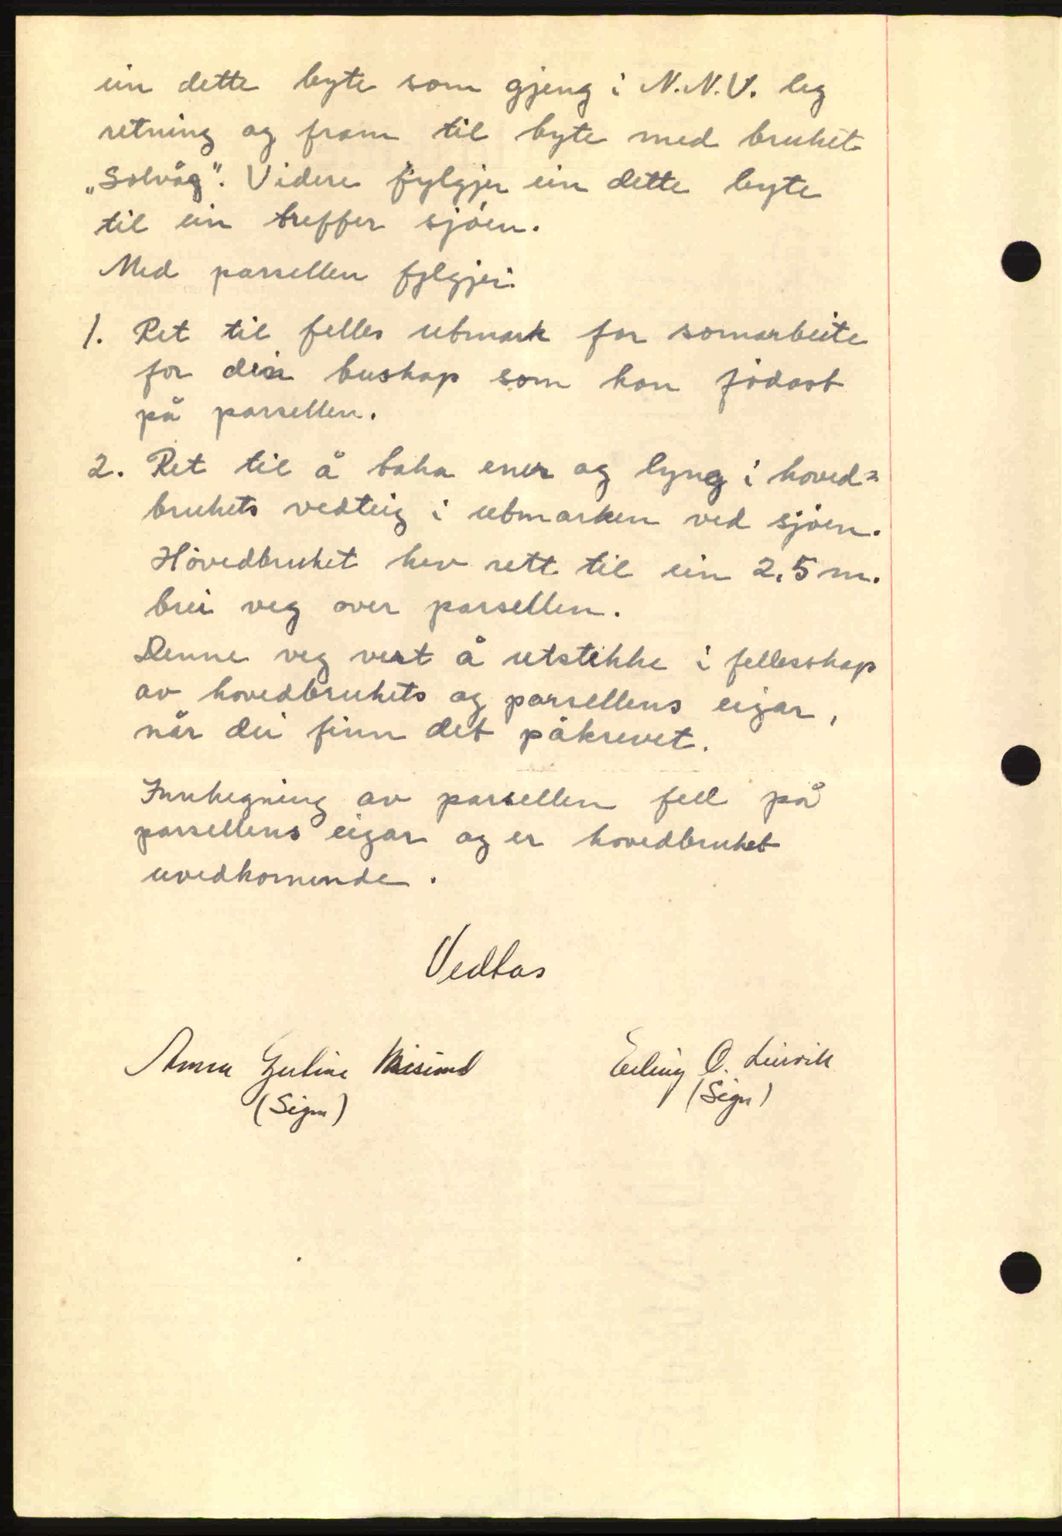 ein dette byte som gjeng i N.N.V. leg
retning og fram til byte med bruket
„Solvåg". Videre fylgjer ein dette byte
til ein treffer sjöen.
Med parsellen fylgjer:
1. Ret til felles utmark for somarbeite
for den buskap som kan födast
på parsellen.
2. Ret til å taka ener og lyng i hoved=
brukets vedteig i utmarken ved sjöen.
Hovedbruket hev rett til ein 2,5 m.
brei veg over parsellen.
Denne veg vert å utstikke i fellesskap
av hovedbrukets og parsellens eigar,
når dei finn det påkrevet.
Innhegning av parsellen fell på
parsellens eigar og er hovedbruket
uvedkomende.
Vedtas
Anna Gurline Misund
(Sign)
Erling O. Leirvik
(Sign)